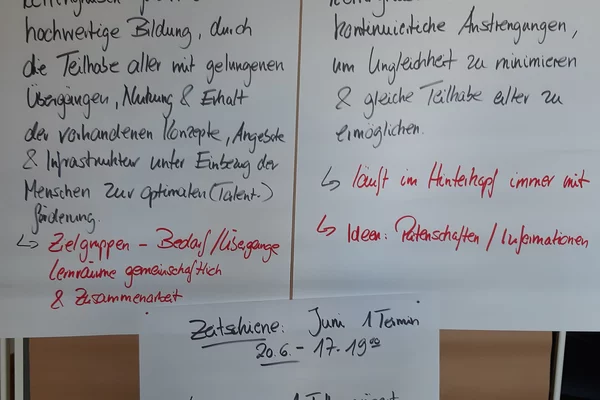 hochwertige Bildung, durch
die Teilhabe aller mit gelungenen
Übergängen, Nutzung & Erhalt
der vorhandenen Konzepte, Angebote
& Infrastruktur unter Einbezug der
Menschen zur optimalen (Talent-)
förderung.
↳ Zielgruppen - Bedarf/Übergänge
Lernräume gemeinschaftlich
& Zusammenarbeit
kontinuierliche Anstrengungen,
um Ungleichheit zu minimieren
& gleiche Teilhabe aller zu
ermöglichen.
↳ läuft im Hinterkopf immer mit
↳ Ideen: Patenschaften / Informationen
Zeitschiene: Juni 1 Termin
20.6. - 17-19⁰⁰